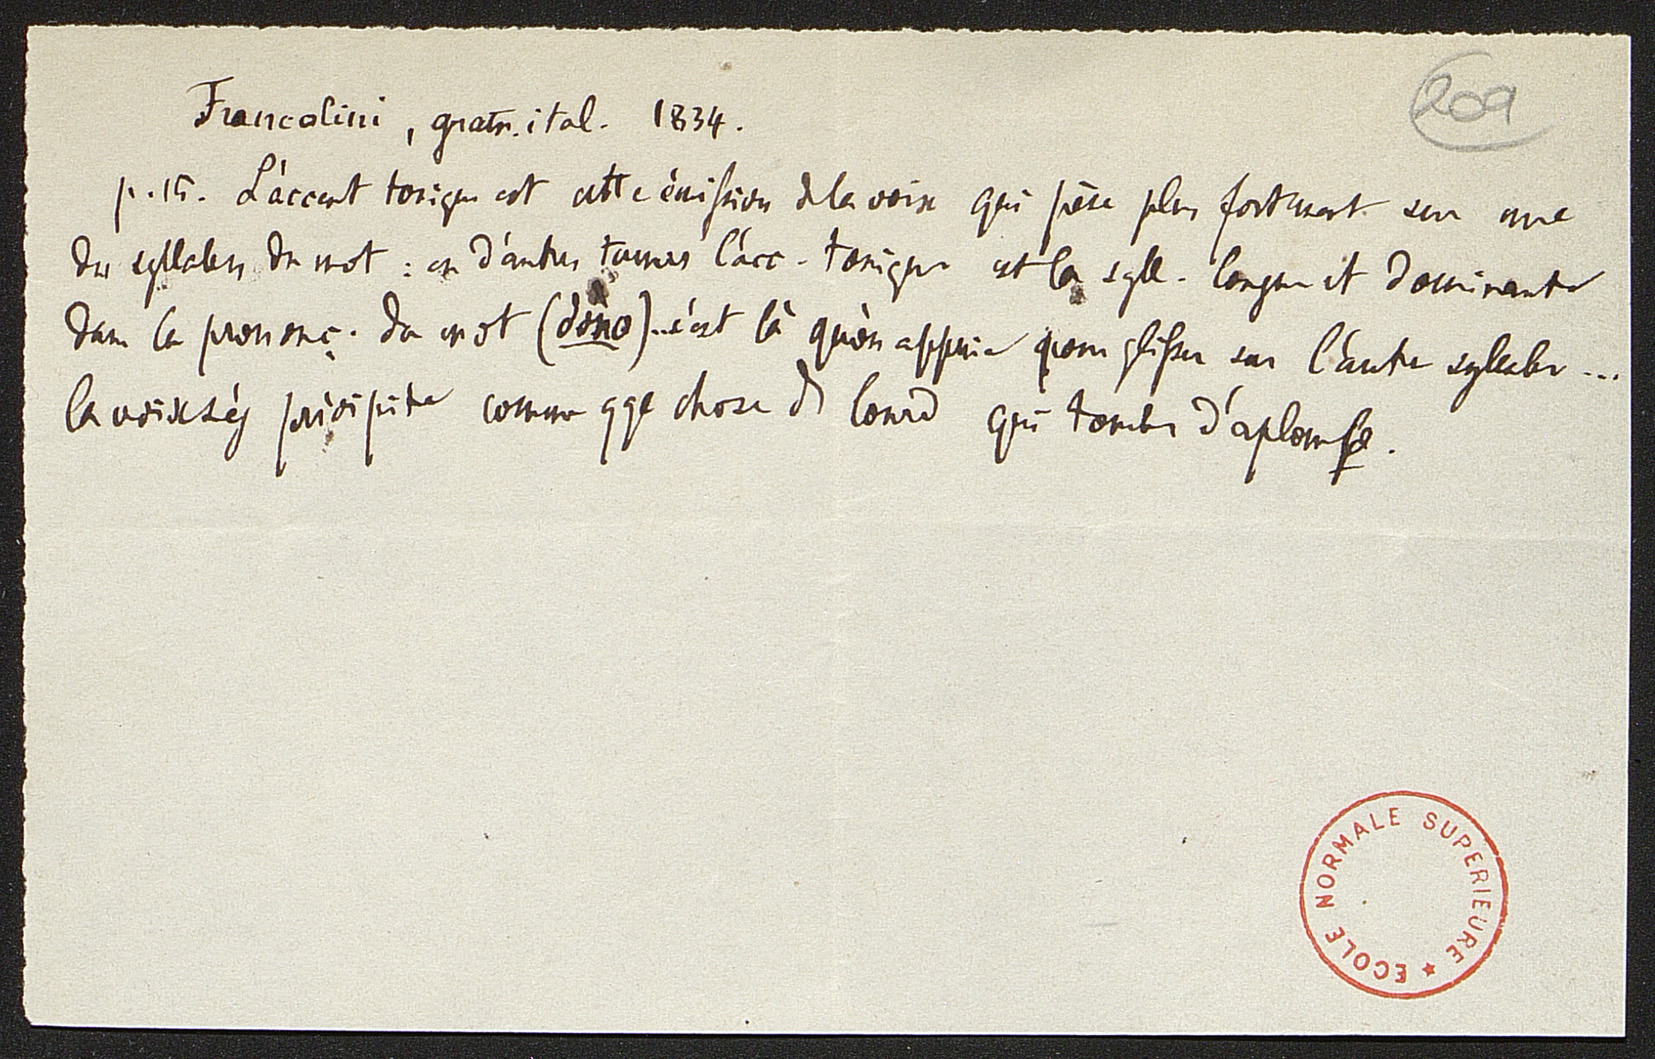 209
Francolini, gram. ital. 1834.
p. 15. L'accent tonique est cette émission de la voix qui pèse plus fortement sur une
des syllabes du mot : en d'autres termes l'acc. tonique est la syll. longue et dominante
dans la prononc. du mot (dono)... c'est là qu'on appuie pour glisser sur l'autre syllabe ...
la voix s'y précipite comme qqe chose de lourd qui tombe d'aplomb.
ECOLE NORMALE SUPERIEURE